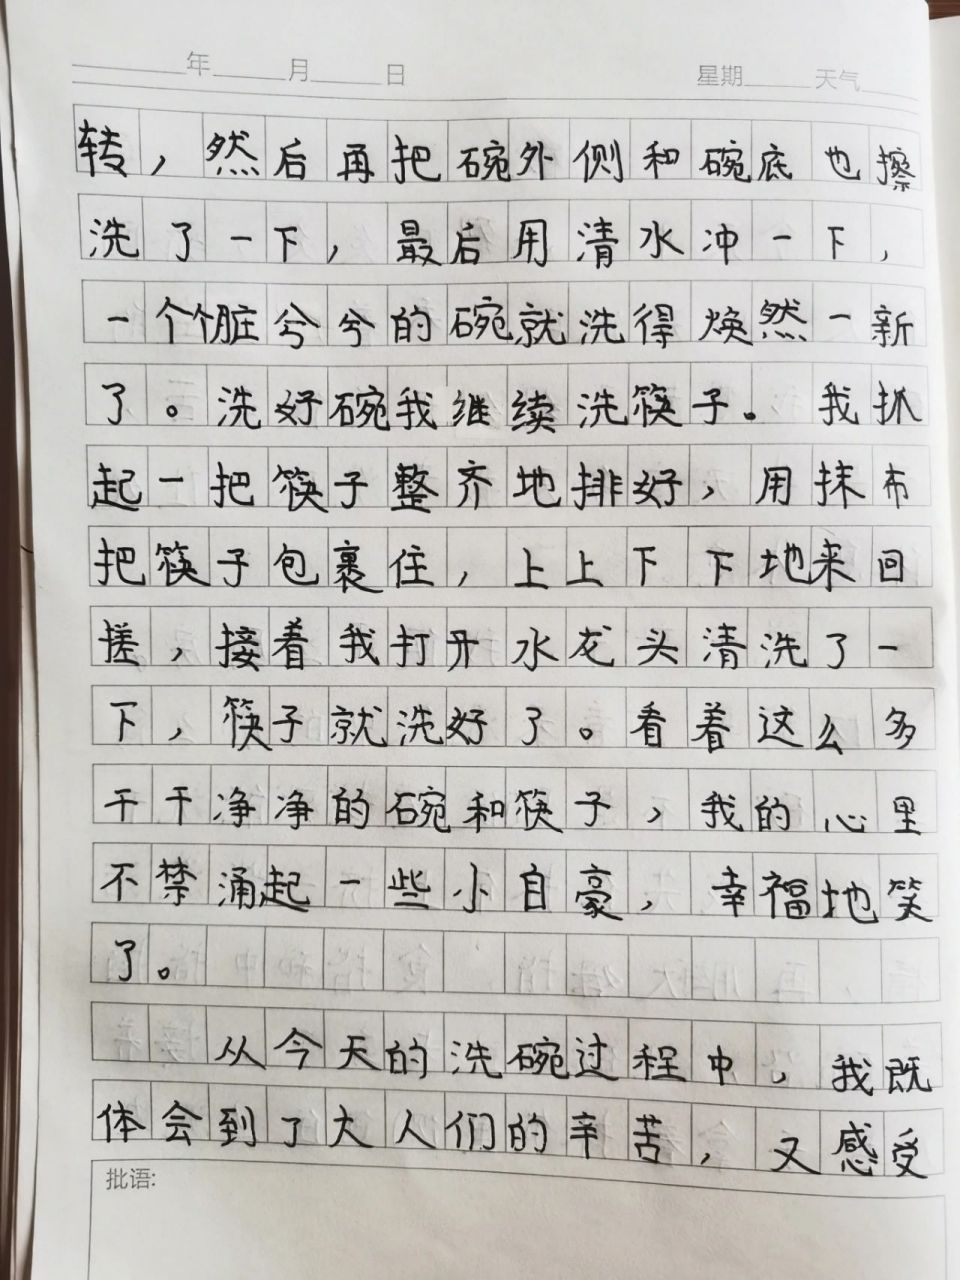 年 月 日 星期 天气
转，然后再把碗外侧和碗底也擦
洗了一下，最后用清水冲一下，
一个个脏兮兮的碗就洗得焕然一新
了。洗好碗我继续洗筷子。我抓
起一把筷子整齐地排好，用抹布
把筷子包裹住，上上下下地来回
搓，接着我打开水龙头清洗了一
下，筷子就洗好了。看着这么多
干干净净的碗和筷子，我的心里
不禁涌起一些小自豪，幸福地笑
了。
从今天的洗碗过程中，我既
体会到了大人们的辛苦，又感受
批语: